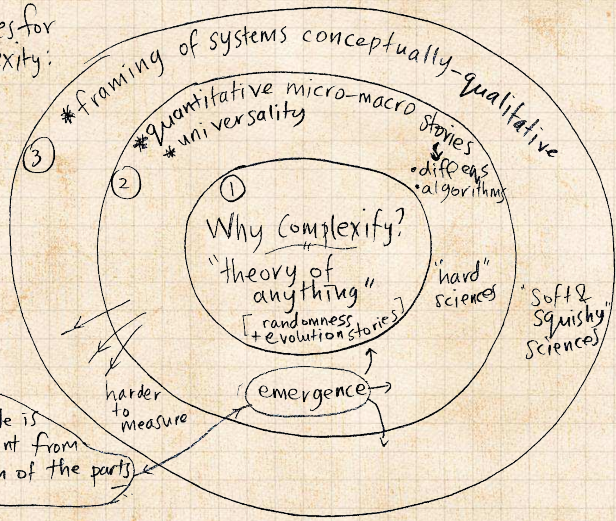 es for
xity:
*framing of systems conceptually-qualitative
*quantitative micro-macro stories
*universality
• diff eqs
• algorithms
3
2
1
Why Complexify?
"theory of
anything"
[randomness
+ evolution stories]
"hard"
sciences
"Soft &
Squishy"
sciences
harder
to
measure
emergence
le is
nt from
n of the parts